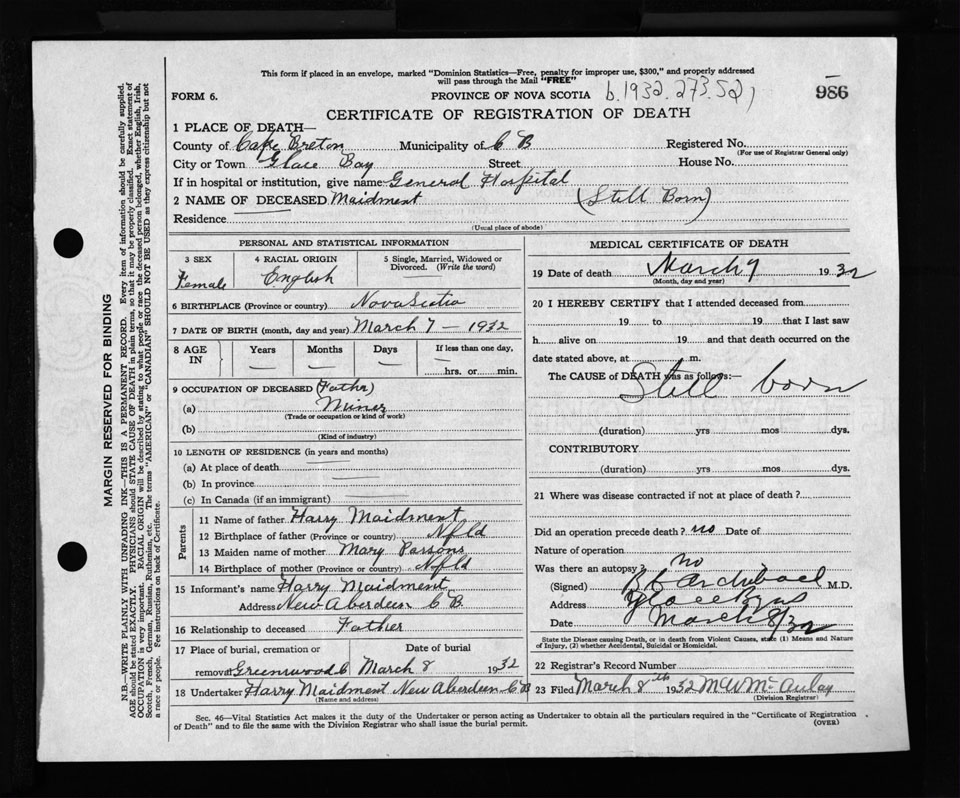 This form if placed in an envelope, marked "Dominion Statistics—Free, penalty for improper use, $300," and properly addressed
will pass through the Mail "FREE"
FORM 6. PROVINCE OF NOVA SCOTIA b.1932.273.521 986
CERTIFICATE OF REGISTRATION OF DEATH
1 PLACE OF DEATH—
County of Cape Breton Municipality of C B Registered No.
(For use of Registrar General only)
City or Town Glace Bay Street House No.
If in hospital or institution, give name General Hospital
2 NAME OF DECEASED Maidment (Still Born)
Residence
(Usual place of abode)
PERSONAL AND STATISTICAL INFORMATION
3 SEX 4 RACIAL ORIGIN 5 Single, Married, Widowed or
Divorced. (Write the word)
Female English
6 BIRTHPLACE (Province or country) Nova Scotia
7 DATE OF BIRTH (month, day and year) March 7 — 1932
8 AGE IN Years Months Days If less than one day,
hrs. or min.
9 OCCUPATION OF DECEASED (Father)
(a) Miner
(Trade or occupation or kind of work)
(b)
(Kind of industry)
10 LENGTH OF RESIDENCE (in years and months)
(a) At place of death
(b) In province
(c) In Canada (if an immigrant)
Parents
11 Name of father Harry Maidment
12 Birthplace of father (Province or country) Nfld
13 Maiden name of mother Mary Parsons
14 Birthplace of mother (Province or country) Nfld
15 Informant's name Harry Maidment
Address New Aberdeen C B.
16 Relationship to deceased Father
17 Place of burial, cremation or Date of burial
removal Greenwood C March 8 1932
18 Undertaker Harry Maidment New Aberdeen C B
(Name and address)
MEDICAL CERTIFICATE OF DEATH
19 Date of death March 7 1932
(Month, day and year)
20 I HEREBY CERTIFY that I attended deceased from
19 to 19 that I last saw
h alive on 19 and that death occurred on the
date stated above, at m.
The CAUSE of DEATH was as follows:—
Still born
(duration) yrs mos dys.
CONTRIBUTORY
(duration) yrs mos dys.
21 Where was disease contracted if not at place of death?
Did an operation precede death? no Date of
Nature of operation
Was there an autopsy? no
(Signed) Archibald M.D.
Address Glace Bay NS
Date March 8/32
State the Disease causing Death, or in death from Violent Causes, state (1) Means and Nature
of Injury, (2) whether Accidental, Suicidal or Homicidal.
22 Registrar's Record Number
23 Filed March 8th 1932 M W McAulay
(Division Registrar)
Sec. 46—Vital Statistics Act makes it the duty of the Undertaker or person acting as Undertaker to obtain all the particulars required in the "Certificate of Registration
of Death" and to file the same with the Division Registrar who shall issue the burial permit. (OVER)
MARGIN RESERVED FOR BINDING
N.B.—WRITE PLAINLY WITH UNFADING INK—THIS IS A PERMANENT RECORD. Every item of information should be carefully supplied.
AGE should be stated EXACTLY. PHYSICIANS should STATE CAUSE OF DEATH in plain terms, so that it may be properly classified. Exact statement of
OCCUPATION is very important. RACIAL ORIGIN will be described by stating to what people or race the deceased person belonged, whether English, Irish,
Scotch, French, German, Russian, Ruthenian, etc. The terms "AMERICAN" or "CANADIAN" SHOULD NOT BE USED as they express citizenship but not
a race or people. Fee instructions on back of Certificate.